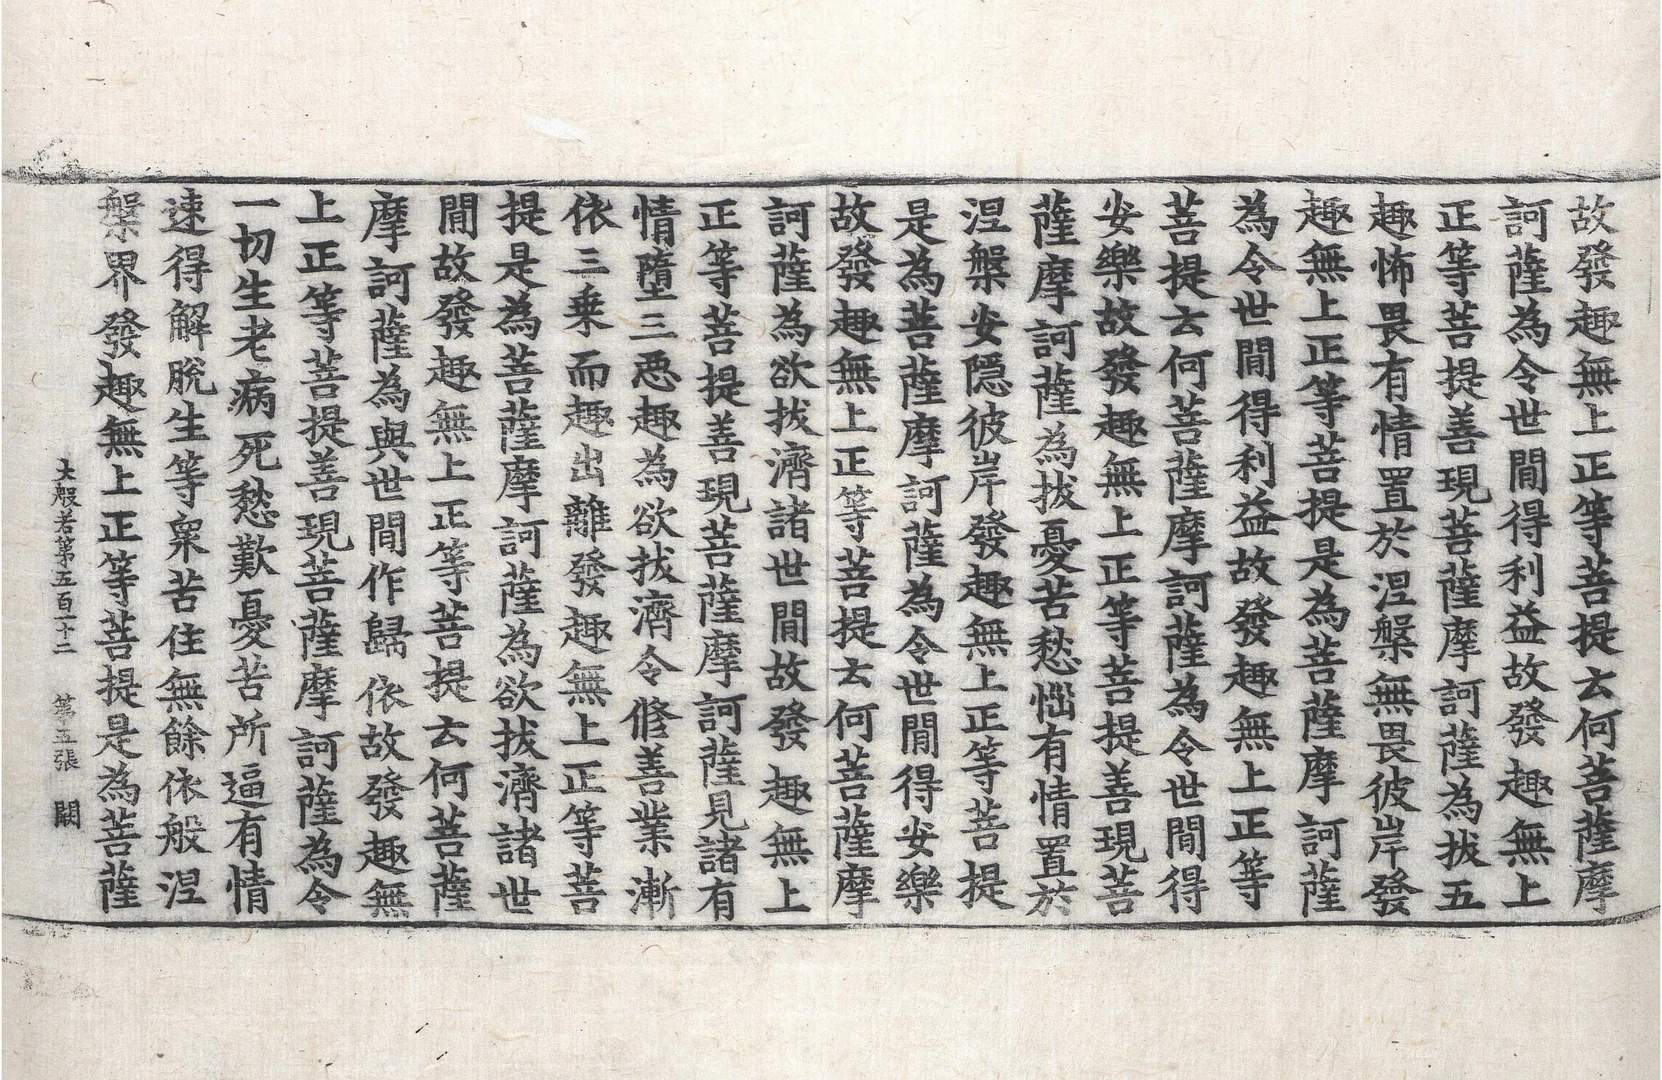 故發趣無上正等菩提云何菩薩摩
訶薩為令世間得利益故發趣無上
正等菩提善現菩薩摩訶薩為拔五
趣怖畏有情置於涅槃無畏彼岸發
趣無上正等菩提是為菩薩摩訶薩
為令世間得利益故發趣無上正等
菩提云何菩薩摩訶薩為令世間得
安樂故發趣無上正等菩提善現菩
薩摩訶薩為拔憂苦愁惱有情置於
涅槃安隱彼岸發趣無上正等菩提
是為菩薩摩訶薩為令世間得安樂
故發趣無上正等菩提云何菩薩摩
訶薩為欲拔濟諸世間故發趣無上
正等菩提善現菩薩摩訶薩見諸有
情墮三惡趣為欲拔濟令脩善業漸
依三乗而趣出離發趣無上正等菩
提是為菩薩摩訶薩為欲拔濟諸世
間故發趣無上正等菩提云何菩薩
摩訶薩為與世間作歸依故發趣無
上正等菩提善現菩薩摩訶薩為令
一切生老病死愁歎憂苦所逼有情
速得解脫生等衆苦住無餘依般涅
槃界發趣無上正等菩提是為菩薩
大般若第五百一十二　第五張　闕